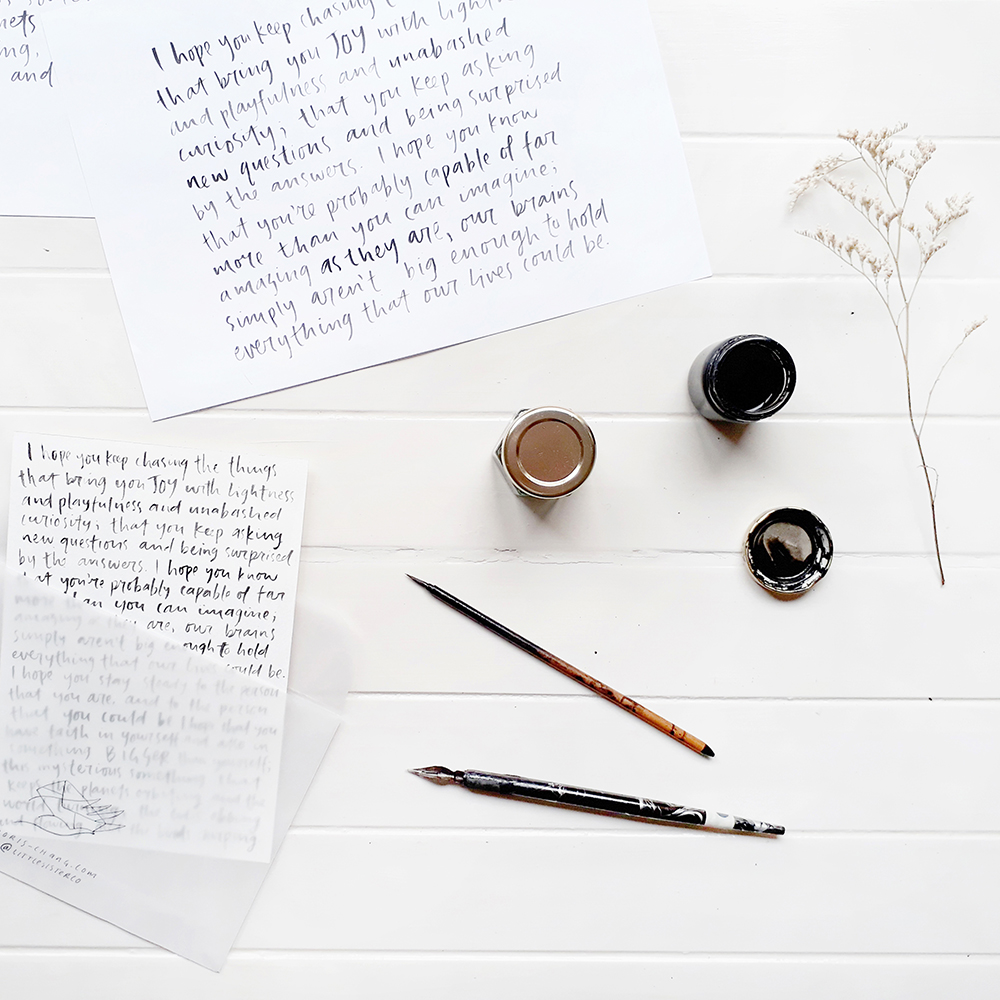 and
I hope you keep chasing
that bring you JOY with lightn
and playfulness and unabashed
curiosity; that you keep asking
new questions and being surprised
by the answers. I hope you know
that you're probably capable of far
more than you can imagine;
amazing as they are, our brains
simply aren't big enough to hold
everything that our lives could be.
I hope you keep chasing the things
that bring you JOY with lightness
and playfulness and unabashed
curiosity; that you keep asking
new questions and being surprised
by the answers. I hope you know
that you're probably capable of far
more than you can imagine;
amazing as they are, our brains
simply aren't big enough to hold
everything that our lives could be.
I hope you stay steady to the person
that you are, and to the person
that you could be. I hope that you
have faith in yourself and also in
something BIGGER than yourself,
this mysterious something that
keeps the planets orbiting and the
world
and
ORIS-CHANG.COM
@LITTLESISTERCO